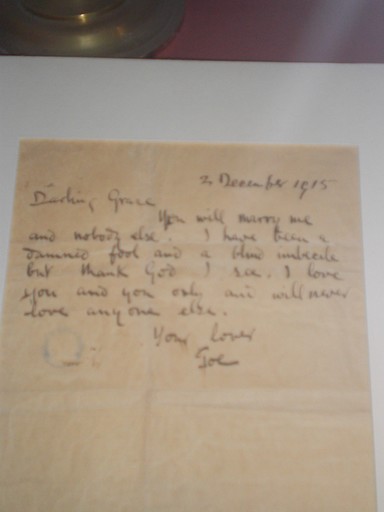 2 December 1915
Darling Grace
You will marry me
and nobody else. I have been a
damned fool and a blind imbecile
but thank God I see. I love
you and you only and will never
love anyone else.
Your lover
Joe